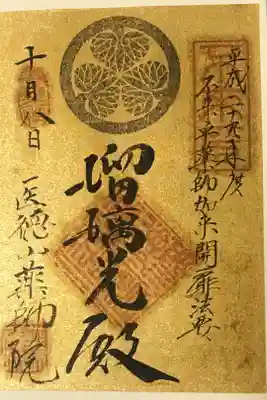 平成二十九年度
不来平薬師如来開扉法要
瑠璃光殿
十月八日
医徳山薬師院